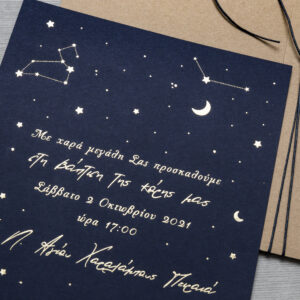 Με χαρά μεγάλη Σας προσκαλούμε
στη βάπτιση της κόρης μας
Σάββατο 2 Οκτωβρίου 2021
ώρα 17:00
Ι. Ν. Αγίου Χαραλάμπους Πειραιά